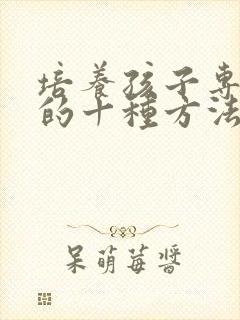 培養孩子專
的十種方法
呆萌莓醬